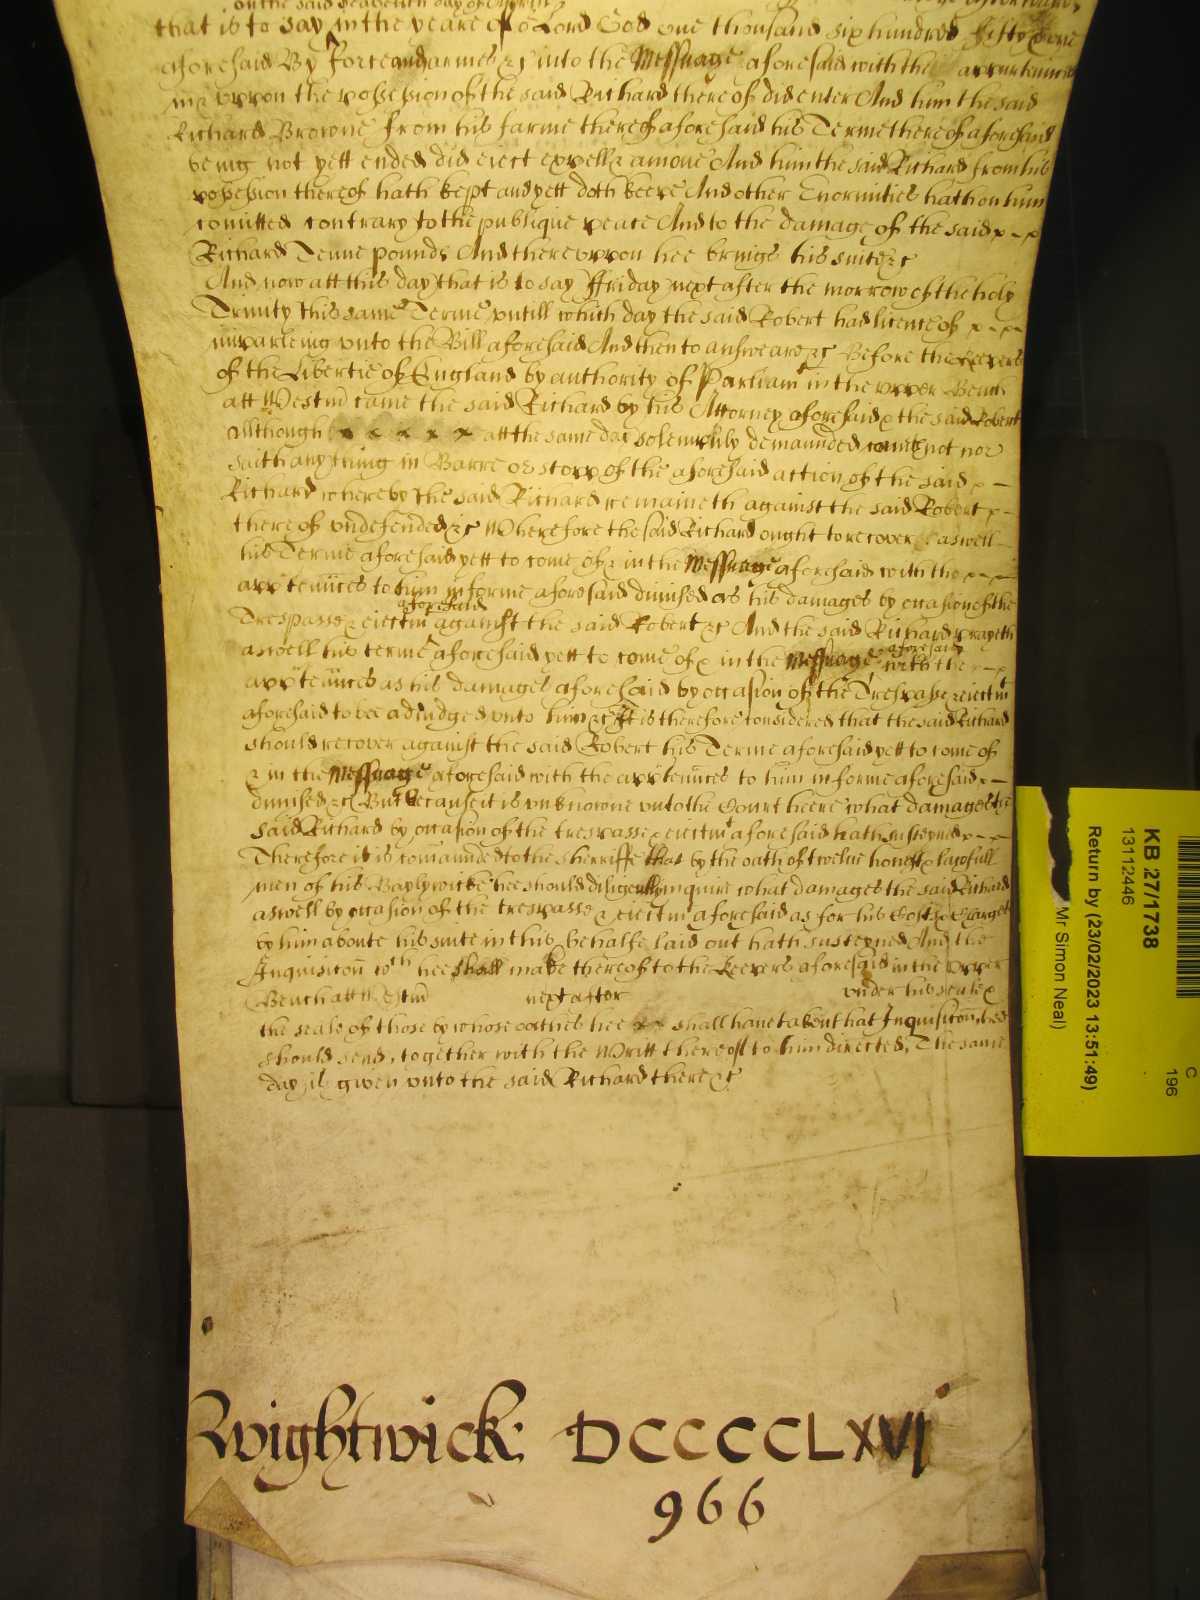 on the said seaventh day of
that is to say in the yeare of or Lord God one thousand six hundred fifty one
aforesaid By force and armes &c into the Messuage aforesaid with the appurtenances
in & uppon the possession of the said Richard thereof did enter And him the said
Richard Browne from his farme thereof aforesaid his Terme thereof aforesaid
being not yett ended did eject expell & amove And him the said Richard from his
possession thereof hath kept and yett doth keepe And other Enormities hath on him
comitted contrary to the publique peace And to the damage of the said
Richard Tenne pounds And thereuppon hee brings his suite &c
And now att this day that is to say ffriday next after the morrow of the holy
Trinity this same Terme untill which day the said Robert had licence of
imparleing unto the Bill aforesaid And then to answeare &c Before the Keepers
of the Libertie of England by authority of Parliamt in the upper Bench
att Westm came the said Richard by his Attorney aforesaid & the said Robert
Although x x x x x att the same day solempnly demaunded came not nor
saith anything in Barre or stopp of the aforesaid action of the said
Richard whereby the said Richard remaineth against the said Robert
thereof undefended &c Wherefore the said Richard ought to recover aswell
his Terme aforesaid yett to come of & in the Messuage aforesaid with the
apptennces to him in forme aforesaid dimised as his damages by occasion of the
Trespasse & ejectmt aforesaid against the said Robert &c And the said Richard prayeth
aswell his terme aforesaid yett to come of & in the Messuage aforesaid with the
apptennces as his damages aforesaid by occasion of the Trespasse & ejectmt
aforesaid to bee adjudged unto him &c It is therefore considered that the said Richard
should recover against the said Robert his Terme aforesaid yett to come of
& in the Messuage aforesaid with the apptennces to him in forme aforesaid
dimised &c But because it is unknowne unto the Court heere what damages the
said Richard by occasion of the trespasse & ejectmt aforesaid hath susteyned
Therefore it is comaunded to the Sherriffe that by the oath of twelve honest & lawfull
men of his Baylywicke hee should diligently inquire what damages the said Richard
aswell by occasion of the trespasse & ejectmt aforesaid as for his Costs & Charges
by him aboute his suite in this behalfe laid out hath susteyned And the
Inquisicon wch hee shall make thereof to the Keepers aforesaid in the upper
Bench att Westm next after under his seale &
the seale of those by whose oathes hee x x shall have taken that Inquisicon hee
should send, together with the Writt thereof to him directed, The same
day is given unto the said Richard there &c
Wightwick: DCCCCLXVI
966
KB 27/1738
13112446
Return by (23/02/2023 13:51:49)
Mr Simon Neal)
C
196